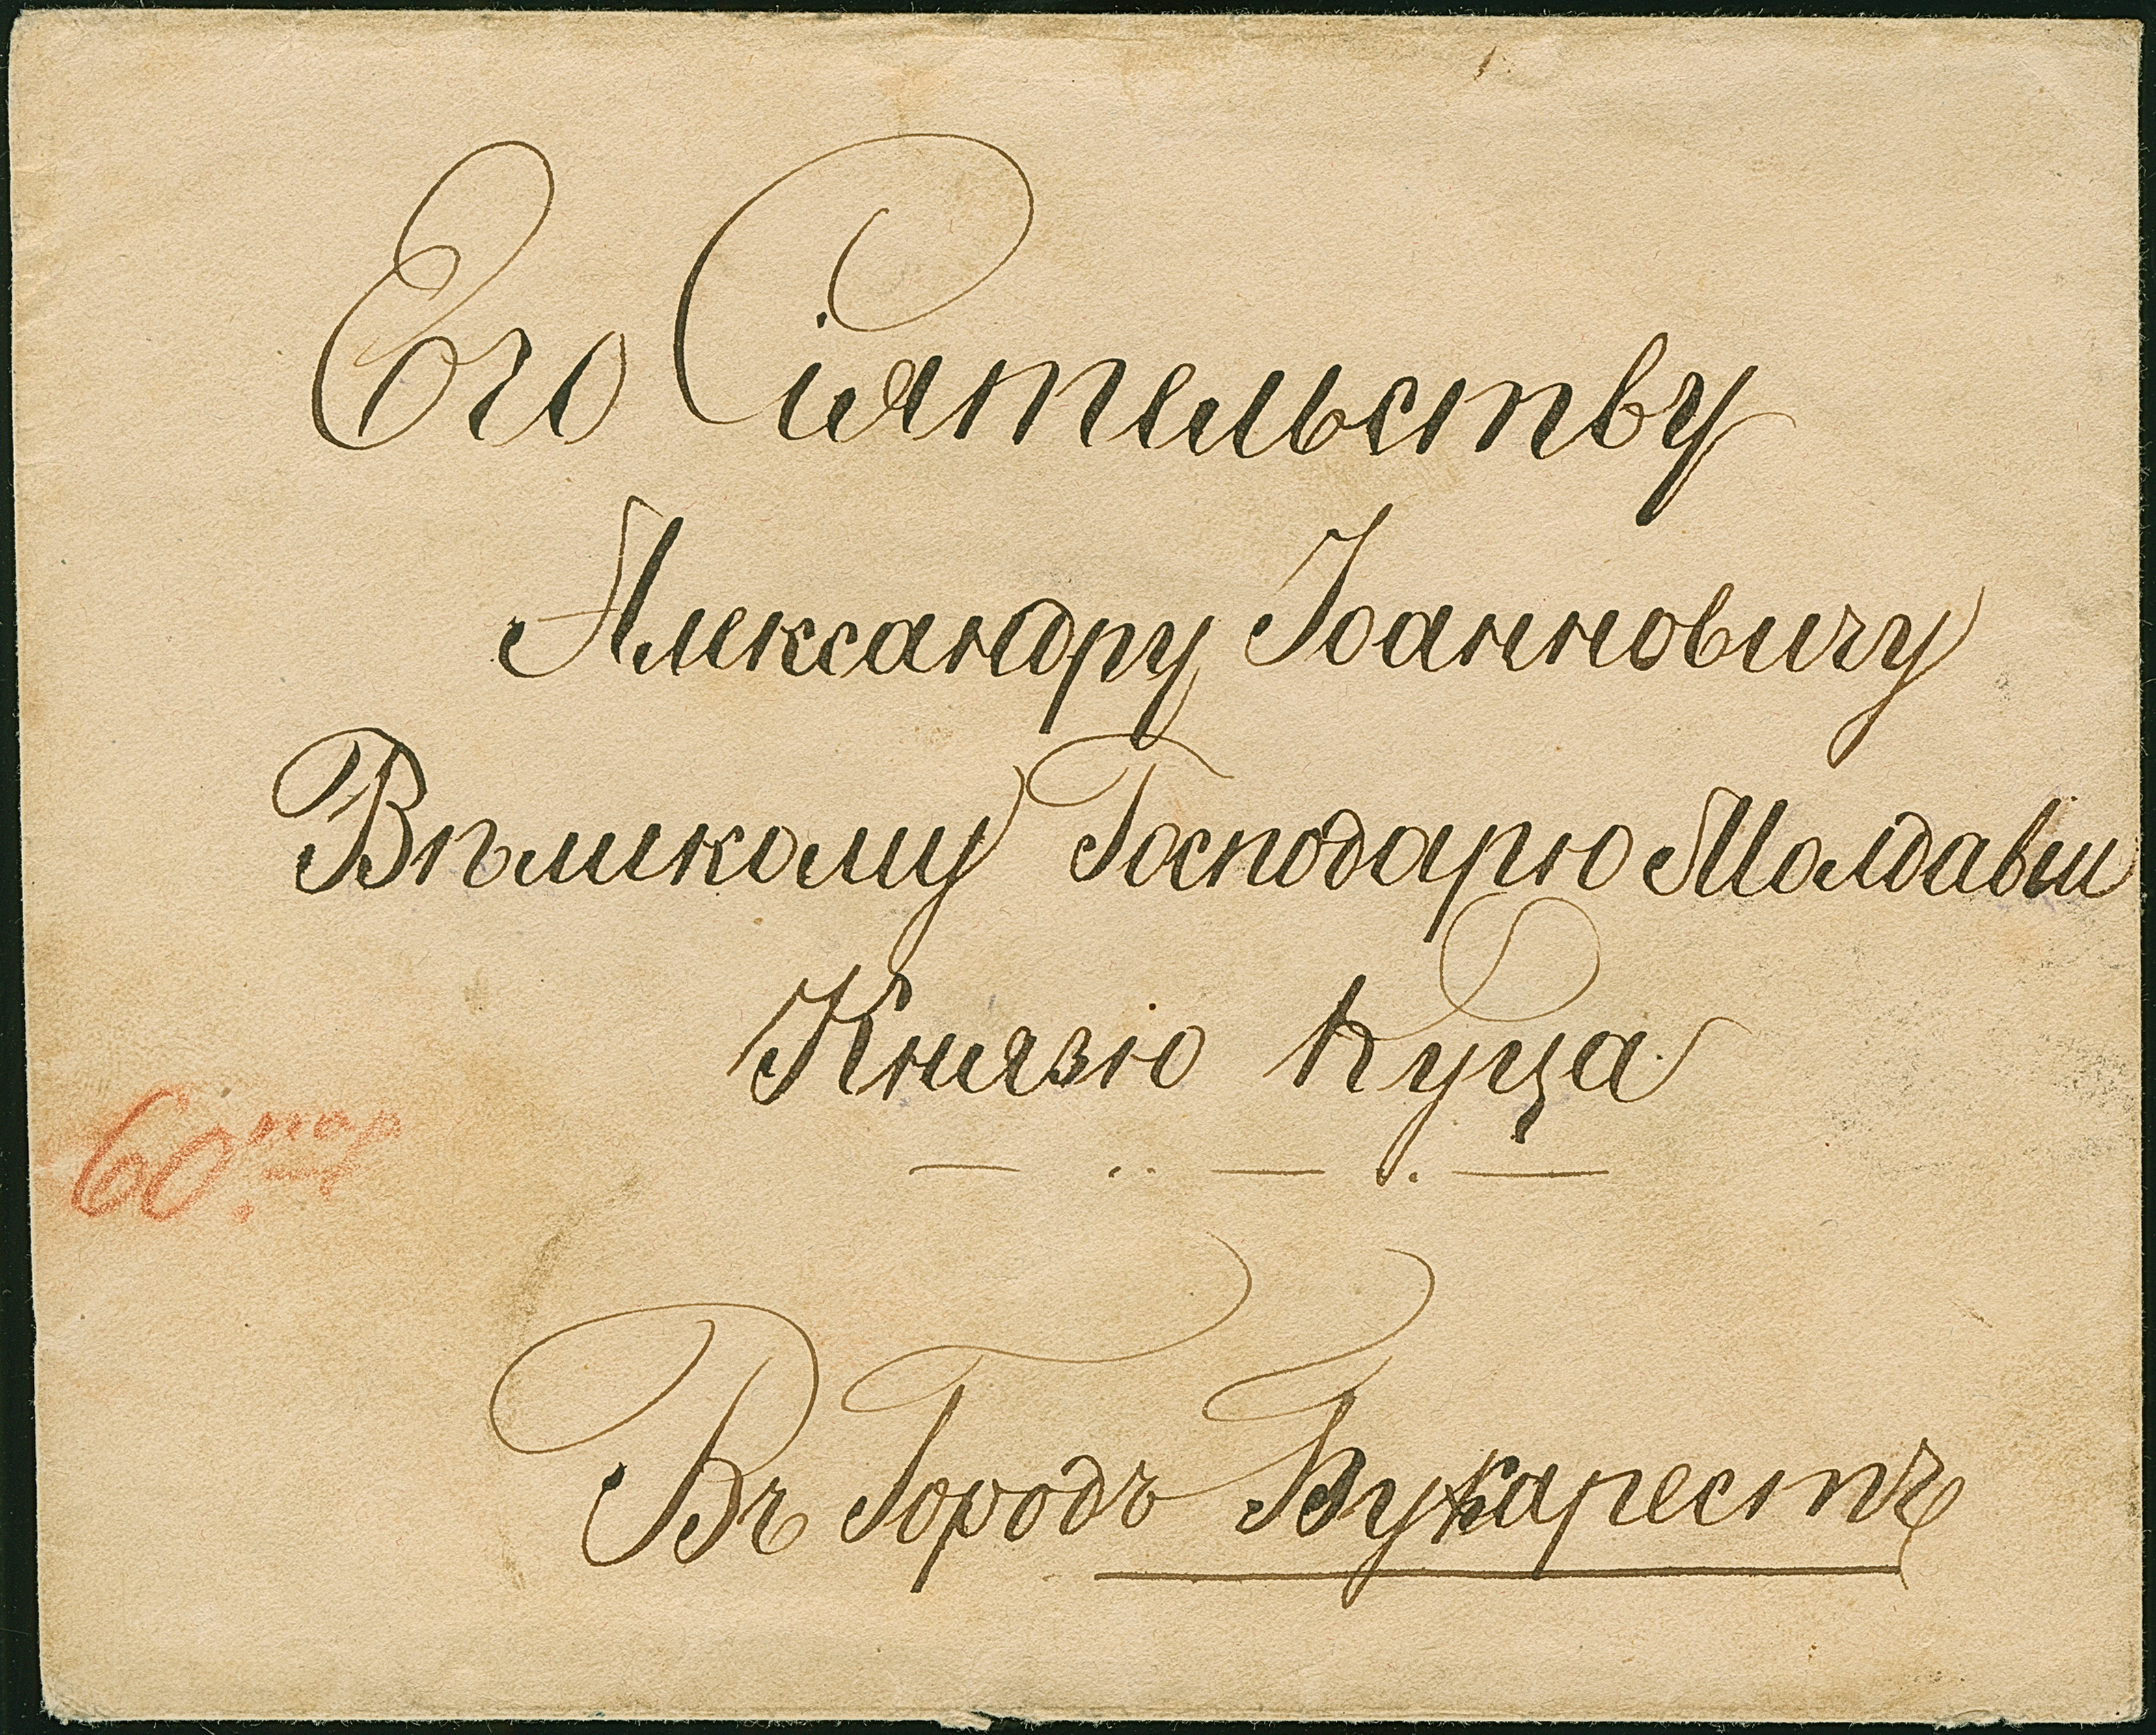 Его Сіятельству
Александру Іоанновичу
Вѣликому Господарю Молдавіи
Князю Куца
60. пар
Въ Городъ Букарестъ